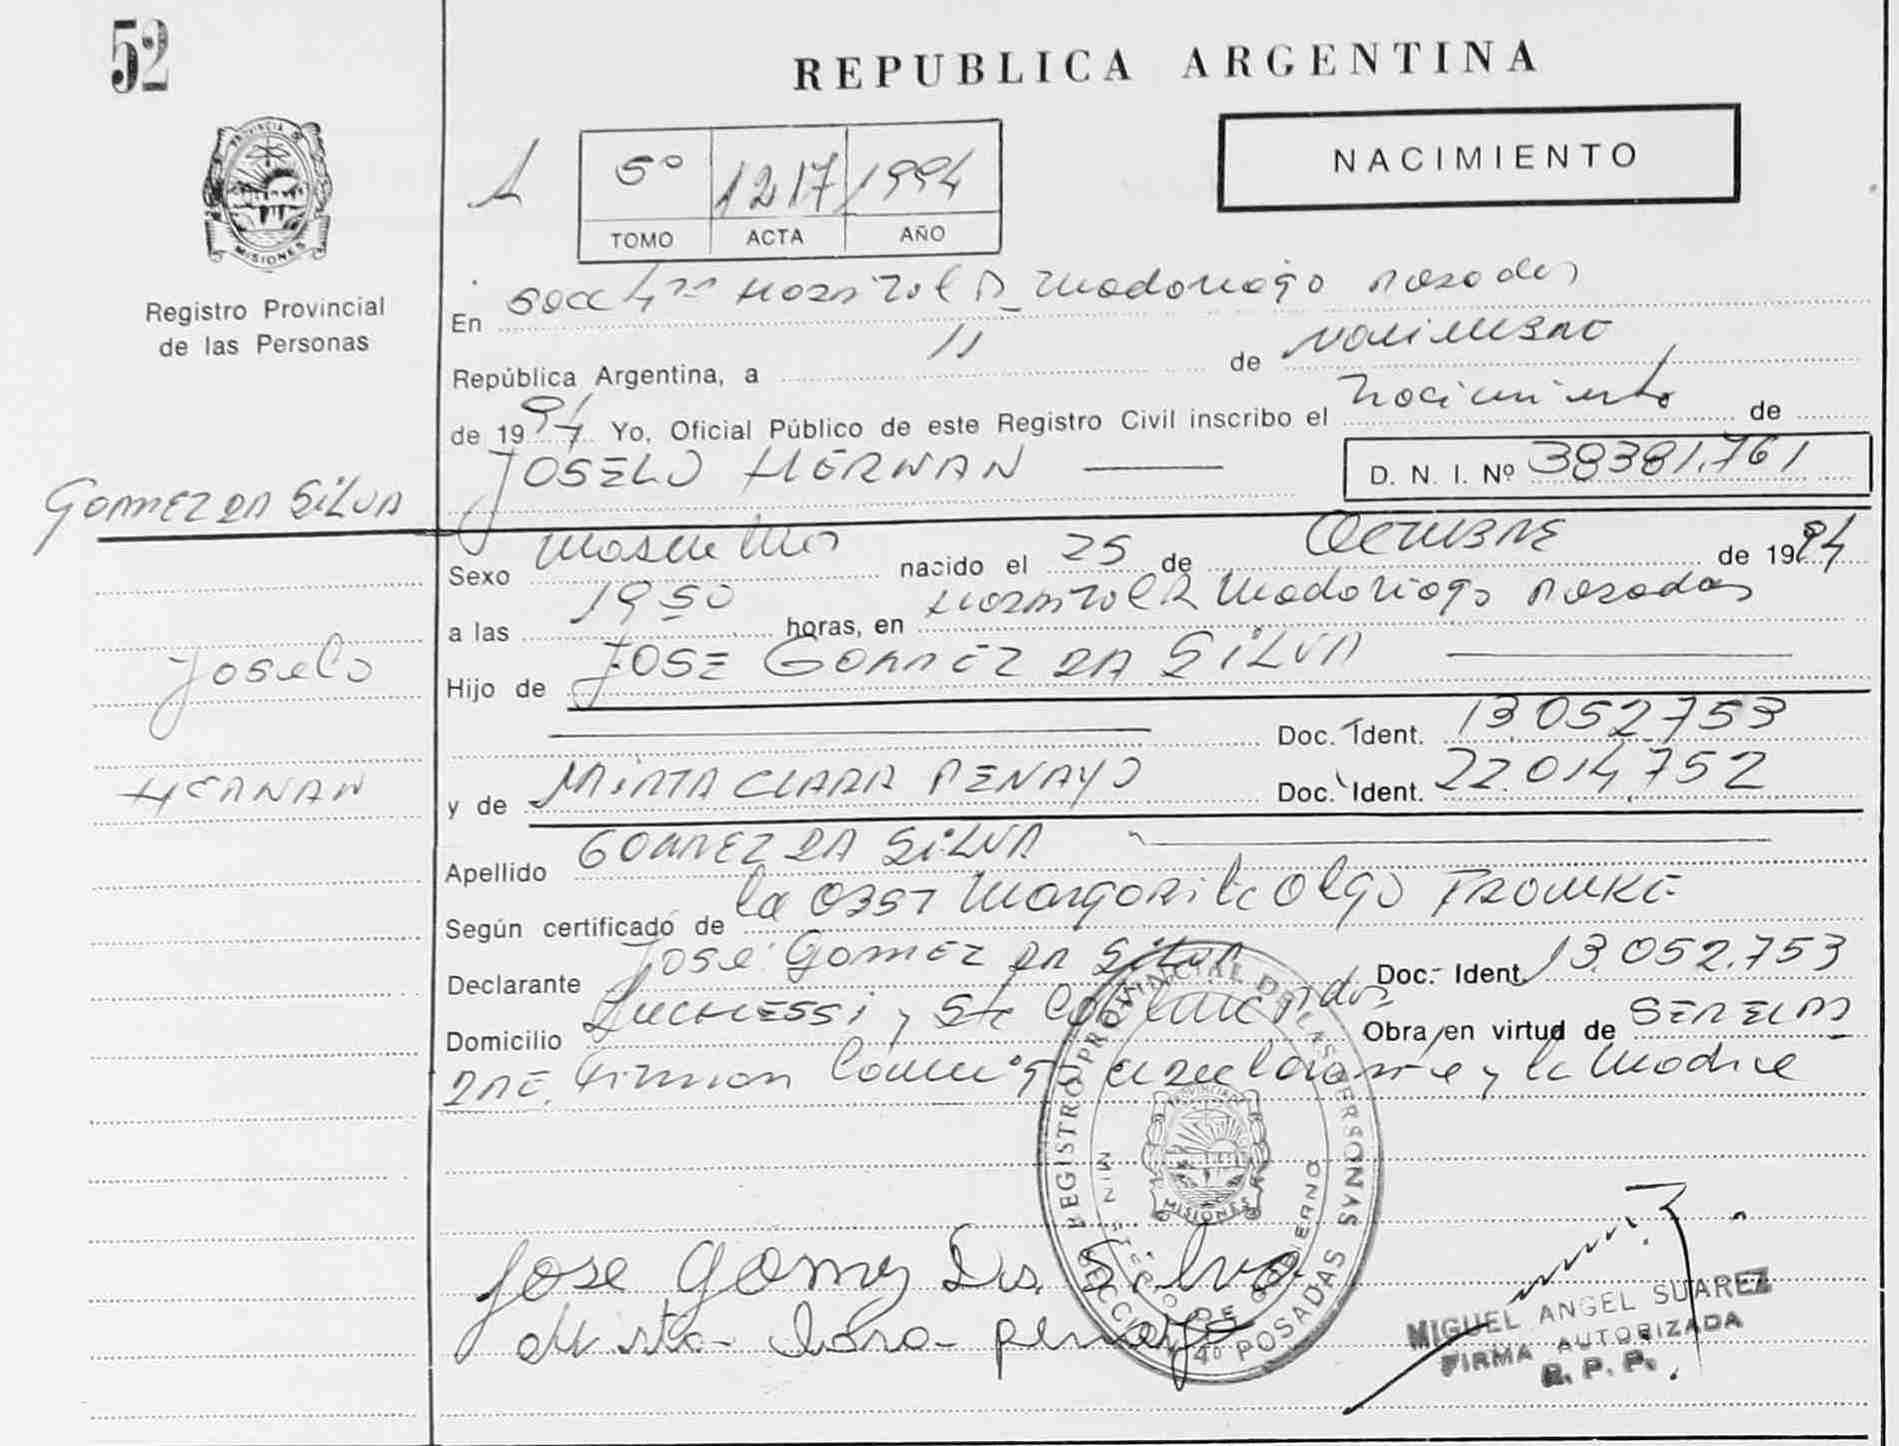 52
REPUBLICA ARGENTINA
NACIMIENTO
PROVINCIA DE
MISIONES
Registro Provincial
de las Personas
5º 1217 1994
TOMO ACTA AÑO
En Secc 4ta Hospital R Madariaga Posadas
República Argentina, a 11 de Noviembre
de 1994 Yo, Oficial Público de este Registro Civil inscribo el Nacimiento de
JOSELO HERNAN D. N. I. Nº 38381.761
GOMEZ DA SILVA
Sexo Masculino nacido el 25 de OCTUBRE de 1994
a las 19 50 horas, en Hospital R Madariaga Posadas
Joselo
Hijo de JOSE GOMEZ DA SILVA
Doc. Ident. 13.052.753
HERNAN
y de MIRTA CLARA PENAYO Doc. Ident. 22.014.752
Apellido GOMEZ DA SILVA
Según certificado de la Obst Margarita Olga
Declarante José GOMEZ DA SILVA Doc. Ident. 13.052.753
Domicilio y Sta Obra en virtud de SER EL PA
DRE. Firman Conmigo el declarante y la Madre
REGISTRO PROVINCIAL DE LAS PERSONAS
SECCION 4º POSADAS
MINISTERIO DE GOBIERNO
PROVINCIA DE
MISIONES
Jose Gomez Da Silva
MIGUEL ANGEL SUAREZ
FIRMA AUTORIZADA
R. P. P.